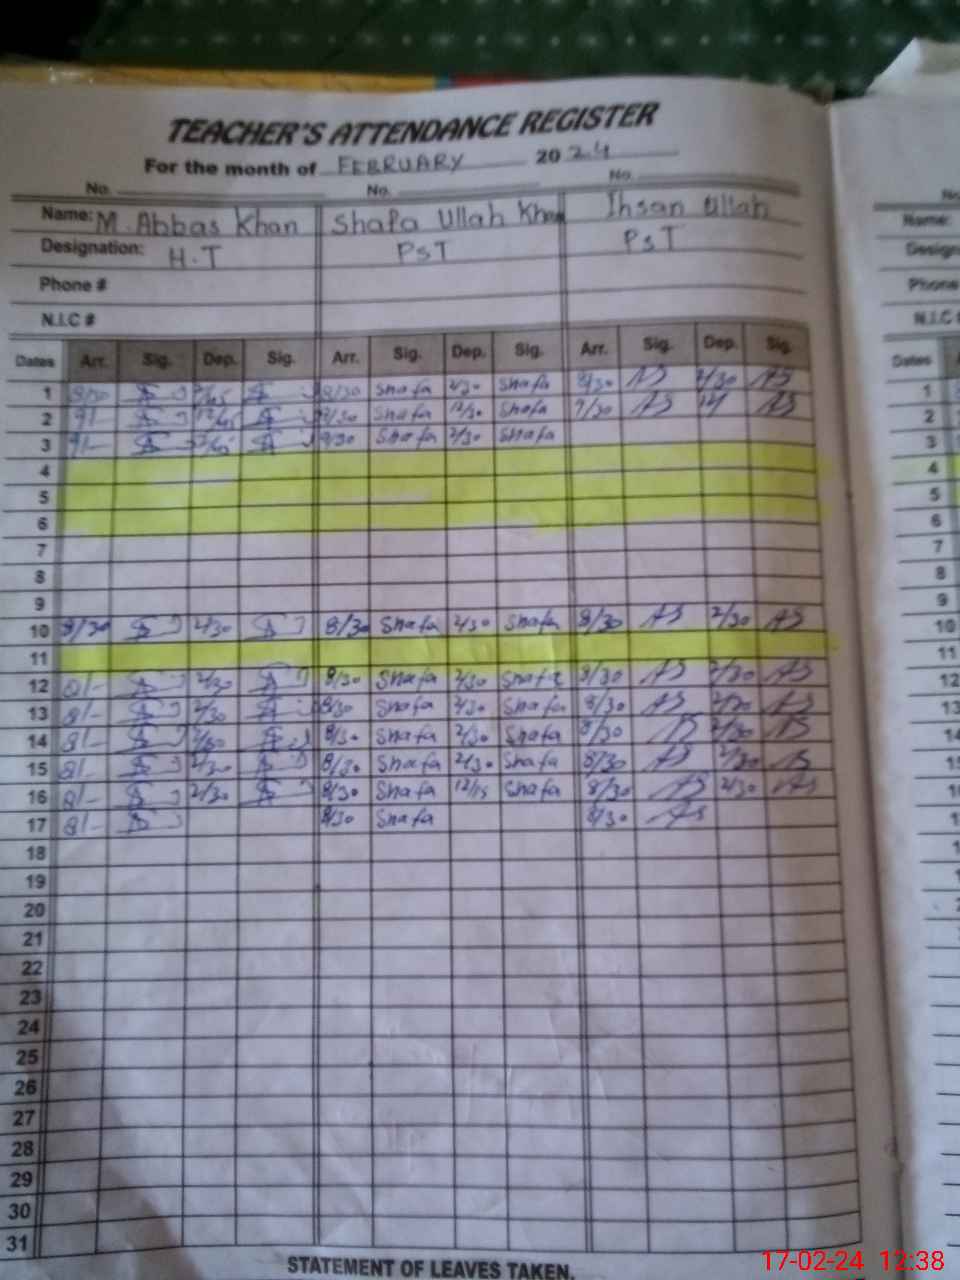 TEACHER'S ATTENDANCE REGISTER
For the month of FEBRUARY 2024
No. No. No.
Name: M. Abbas Khan Shafa Ullah Khan Ihsan Ullah
Designation: H.T PST PST
Phone #
N.I.C #
Dates Arr. Sig. Dep. Sig. Arr. Sig. Dep. Sig. Arr. Sig. Dep. Sig.
1 8/30 8/30 Shafa 2/30 Shafa 8/30 AS 2/30 AS 1
2 9/- 12/45 8/30 Shafa 12/30 Shafa 9/30 AS 12/ AS 2
3 9/- 9/30 Shafa 2/30 Shafa 3
4 4
5 5
6 6
7 7
8 8
9 9
10 8/30 2/30 8/30 Shafa 2/30 Shafa 8/30 AS 2/30 AS 10
11 11
12 8/- 2/30 8/30 Shafa 2/30 Shafa 8/30 AS 2/30 AS 12
13 8/- 2/30 8/30 Shafa 2/30 Shafa 8/30 AS 2/30 AS 13
14 8/- 8/30 Shafa 2/30 Shafa 8/30 AS 2/30 AS 14
15 8/- 2/30 8/30 Shafa 2/30 Shafa 8/30 AS 2/30 AS
16 8/- 2/30 8/30 Shafa 12/15 Shafa 8/30 AS 2/30 AS
17 8/- 8/30 Shafa 8/30 AS
18
19
20
21
22
23
24
25
26
27
28
29
30
31
STATEMENT OF LEAVES TAKEN.
17-02-24 12:38
Name:
Phone
N.I.C
Dates